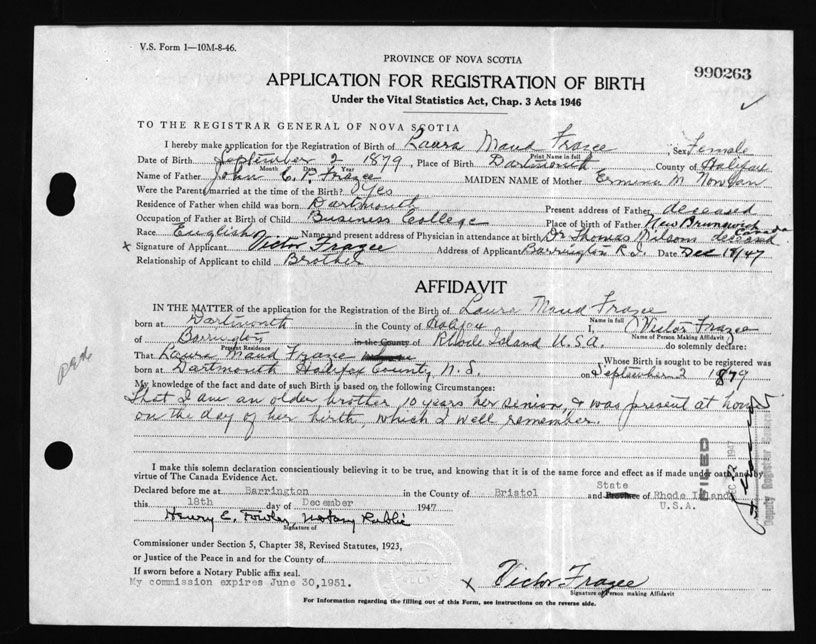 V.S. Form 1—10M-8-46.
PROVINCE OF NOVA SCOTIA
990263
APPLICATION FOR REGISTRATION OF BIRTH
Under the Vital Statistics Act, Chap. 3 Acts 1946
TO THE REGISTRAR GENERAL OF NOVA SCOTIA
I hereby make application for the Registration of Birth of Laura Maud Frazee, Sex Female
Print Name in full
Date of Birth September 2 1879, Place of Birth Dartmouth County of Halifax
Month Day Year
Name of Father John C. P. Frazee MAIDEN NAME of Mother Ermina M
Were the Parents married at the time of the Birth? Yes
Residence of Father when child was born Dartmouth Present address of Father deceased
Occupation of Father at Birth of Child Business College Place of birth of Father New Brunswick Canada
Race English Name and present address of Physician in attendance at birth Dr Thomas Milsom deceased
x Signature of Applicant Victor Frazee Address of Applicant Barrington R.I. Date Dec 18/47
Relationship of Applicant to child Brother
AFFIDAVIT
IN THE MATTER of the application for the Registration of the Birth of Laura Maud Frazee
Name in full
born at Dartmouth in the County of Halifax I, Victor Frazee
Name of Person Making Affidavit
of Barrington in the County of Rhode Island U.S.A. do solemnly declare:
Present Residence
That Laura Maud Frazee Whose Birth is sought to be registered was
born at Dartmouth Halifax County, N.S. on September 2 1879
My knowledge of the fact and date of such Birth is based on the following Circumstances:
That I am an older brother 10 years her senior, & was present at home
on the day of her birth, which I well remember.
I make this solemn declaration conscientiously believing it to be true, and knowing that it is of the same force and effect as if made under oath and by
virtue of The Canada Evidence Act.
State
Declared before me at Barrington in the County of Bristol and Province of Rhode Island
this 18th day of December 1947 U.S.A.
Henry E. Fowler, Notary Public
Signature of
Commissioner under Section 5, Chapter 38, Revised Statutes, 1923,
or Justice of the Peace in and for the County of
If sworn before a Notary Public affix seal.
My commission expires June 30, 1951.
x Victor Frazee
Signature of Person making Affidavit
For Information regarding the filling out of this Form, see instructions on the reverse side.
1947
Deputy Registrar General